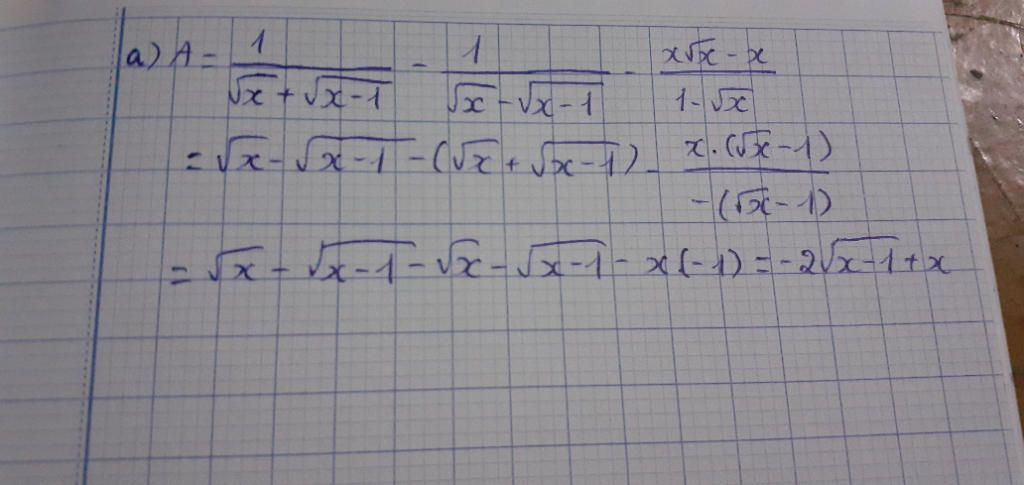 a) A = \frac{1}{\sqrt{x} + \sqrt{x-1}} - \frac{1}{\sqrt{x} - \sqrt{x-1}} - \frac{x\sqrt{x} - x}{1 - \sqrt{x}}
= \sqrt{x} - \sqrt{x-1} - (\sqrt{x} + \sqrt{x-1}) - \frac{x \cdot (\sqrt{x} - 1)}{-(\sqrt{x} - 1)}
= \sqrt{x} - \sqrt{x-1} - \sqrt{x} - \sqrt{x-1} - x(-1) = -2\sqrt{x-1} + x